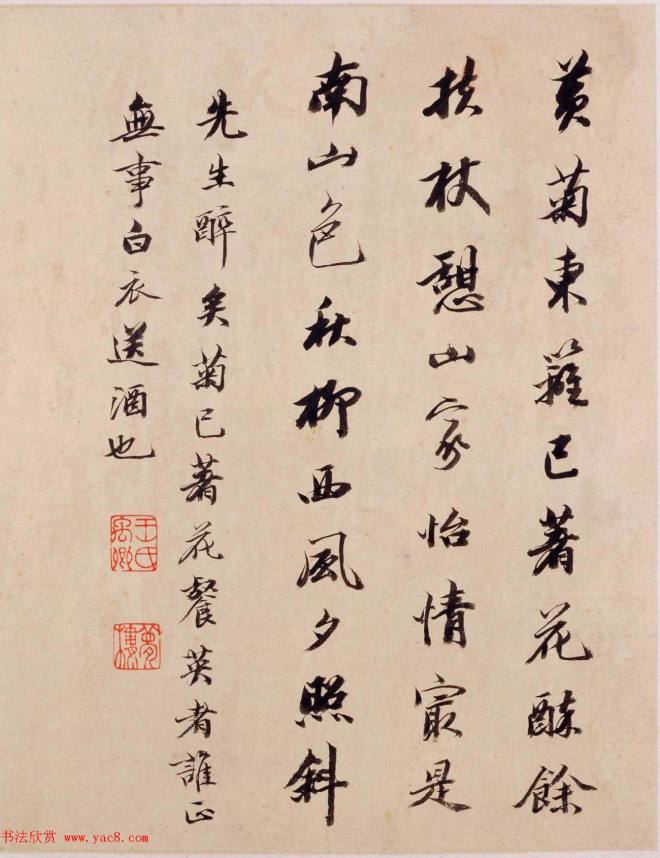 黄菊東籬已著花酔餘
扶杖憩山家怡情㝡是
南山色秋柳西風夕照斜
先生醉矣菊已著花餐英者誰正
無事白衣送酒也
王氏禹卿
夢樓
书法欣赏 www.yac8.com